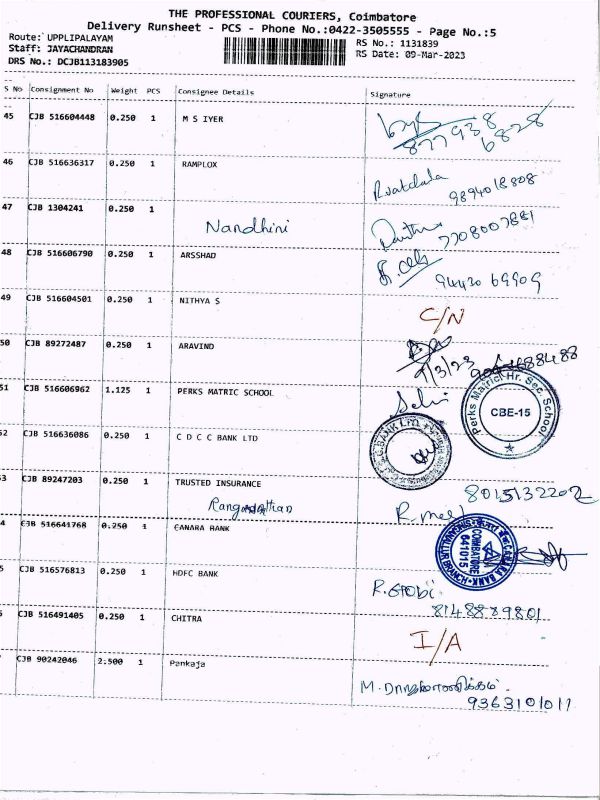 THE PROFESSIONAL COURIERS, Coimbatore
Delivery Runsheet - PCS - Phone No.:0422-3505555 - Page No.:5
Route: UPPLIPALAYAM
RS No.: 1131839
Staff: JAYACHANDRAN
RS Date: 09-Mar-2023
DRS No.: DCJB113183905
S No Consignment No Weight PCS Consignee Details Signature
45 CJB 516604448 0.250 1 M S IYER
877938
6828
46 CJB 516636317 0.250 1 RAMPLOX
9894018808
47 CJB 1304241 0.250 1
Nandhini
7708007881
48 CJB 516606790 0.250 1 ARSSHAD
94430 69909
49 CJB 516604501 0.250 1 NITHYA S
C/N
50 CJB 89272487 0.250 1 ARAVIND
9/3/23
51 CJB 516606962 1.125 1 PERKS MATRIC SCHOOL
Selvi
Perks Matric. Hr. Sec. School
CBE-15
52 CJB 516636086 0.250 1 C D C C BANK LTD
3 CJB 89247203 0.250 1 TRUSTED INSURANCE
8015132202
4 CJB 516641768 0.250 1 CANARA BANK
CANARA BANK
COIMBATORE
641015
5 CJB 516576813 0.250 1 HDFC BANK
R. Gobi
8148889801
CJB 516491405 0.250 1 CHITRA
I/A
CJB 90242046 2.500 1 Pankaja
9363101011